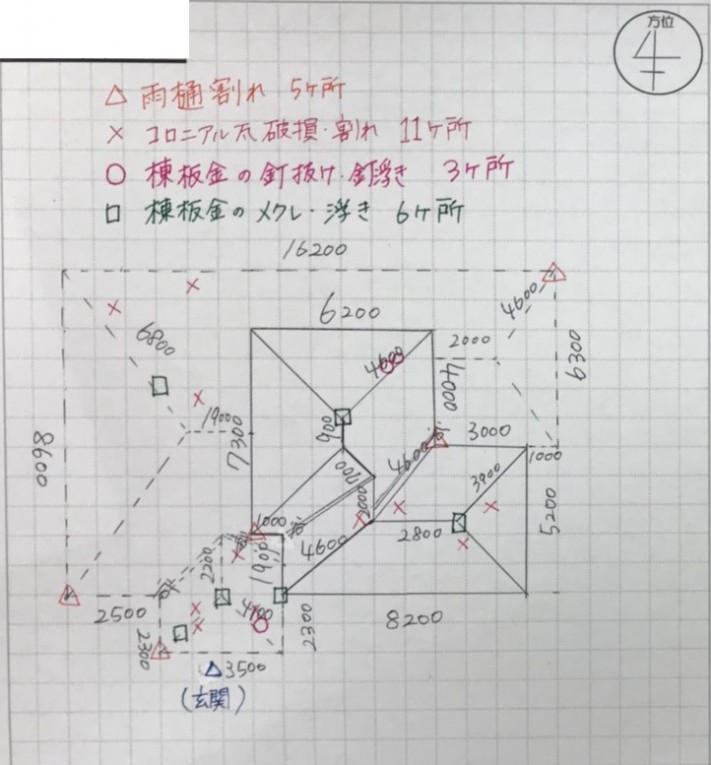 方位
4
△ 雨樋割れ 5ケ所
× コロニアル瓦破損・割れ 11ケ所
○ 棟板金の釘抜け・釘浮き 3ケ所
□ 棟板金のメクレ・浮き 6ケ所
16200
6200
4600
6800
4600
2000
4000
6300
8600
1900
7300
900
700
4600
3000
1000
3900
2000
5200
1000
4600
2800
2200
1900
2500
4100
2300
2300
8200
△3500
(玄関)